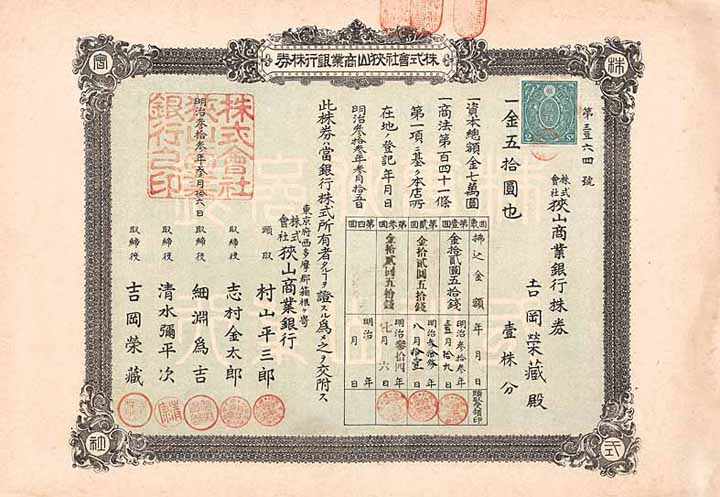 株式會社狹山商業銀行株券
株
式
會
社
第壹六四號
株式會社狹山商業銀行株券
壹株分
一金五拾圓也
吉岡榮藏殿
一資本總額金七萬圓
一商法第百四十一條
第一項ニ基ク本店所
在地ノ登記年月日
明治參拾參年參月拾五日
回數
拂込金額
年月日
頭取領印
第壹回
金拾貳圓五拾錢
明治參拾參年
壹月拾九日
第貳回
金拾貳圓五拾錢
明治參拾參年
八月拾壹日
第參回
金拾貳圓五拾錢
明治參拾四年
七月六日
第四回
明治 年
月 日
此株券ハ當銀行株式所有者タルヿヲ證スル為メ之ヲ交附ス
明治參拾參年參月拾六日
東京府西多摩郡箱根ヶ﨑
株式會社狹山商業銀行
頭取 村山平三郎
取締役 志村金太郎
取締役 細淵為吉
取締役 清水彌平次
取締役 吉岡榮藏
株式會社
狹山商業
銀行之印